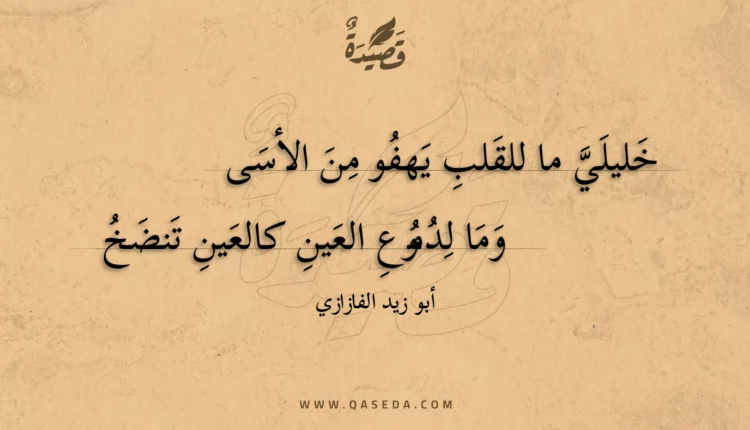 قَصِيدَةٌ
خَليلَيَّ ما للقَلبِ يَهفُو مِنَ الأسَى
وَمَا لِدُمُوعِ العَينِ كالعَينِ تَنضَخُ
أبو زيد الفازازي
WWW.QASEDA.COM